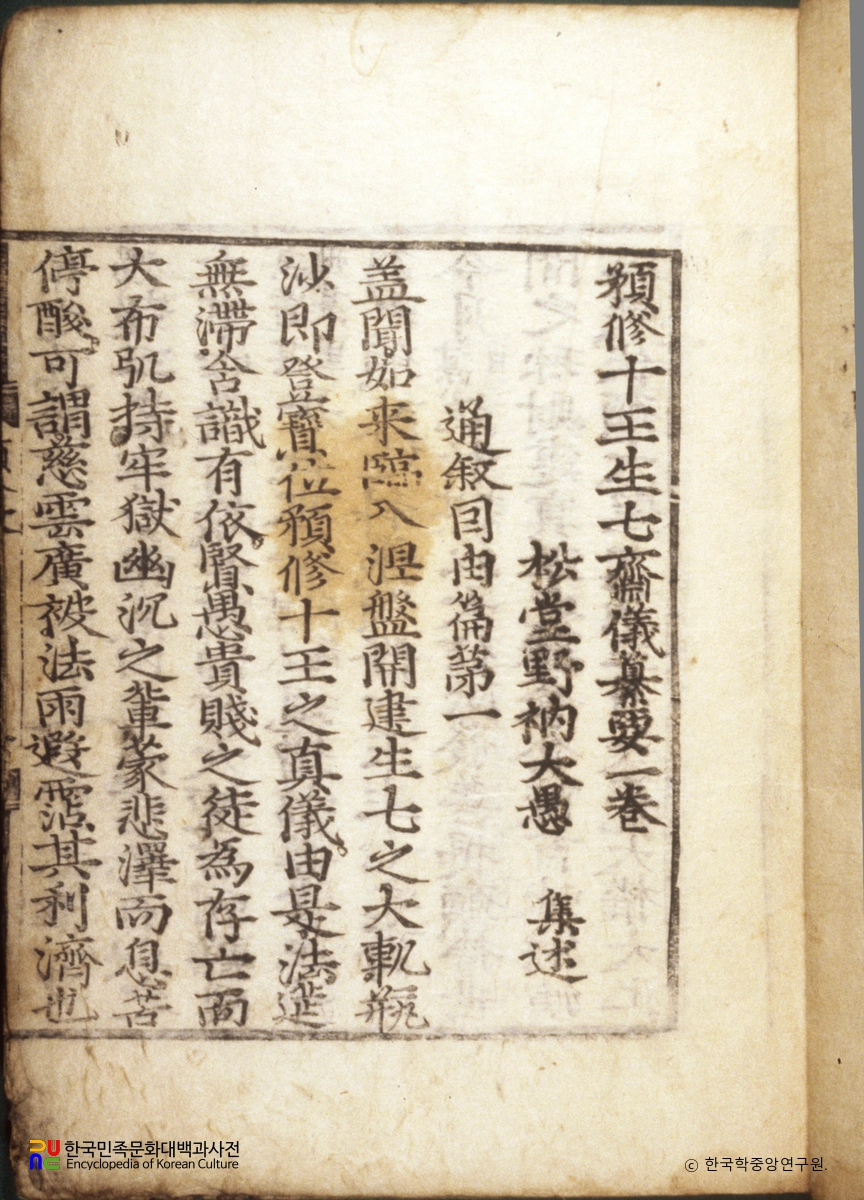 預修十王生七齋儀纂要一卷
松堂野衲大愚 集述
通叙因由篇第一
盖聞如来臨入涅盤開建生七之大軌甁
沙即登寶位預修十王之真儀由是法筵
無滯含識有依賢愚貴賤之徒為存亡而
大布㐲持牢獄幽沉之軰蒙悲澤而息苦
停酸可謂慈雲廣被法雨遐霑其利濟也
한국민족문화대백과사전
Encyclopedia of Korean Culture
ⓒ 한국학중앙연구원.